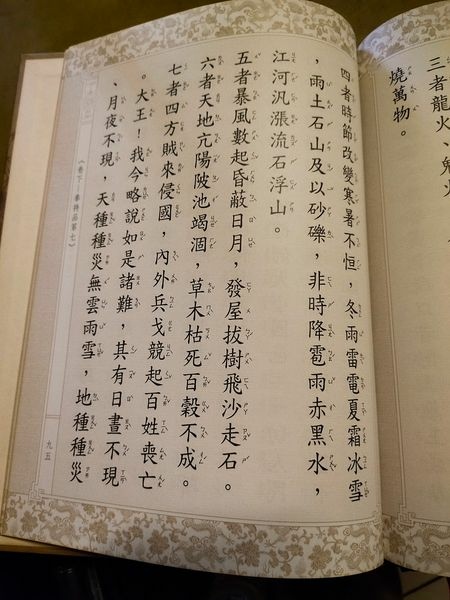 三者龍火、鬼火
燒萬物。
四者時節改變寒暑不恒，冬雨雷電夏霜冰雪
，雨土石山及以砂礫，非時降雹雨赤黑水，
江河汎漲流石浮山。
五者暴風數起昏蔽日月，發屋拔樹飛沙走石。
六者天地亢陽陂池竭涸，草木枯死百穀不成。
七者四方賊來侵國，內外兵戈競起百姓喪亡
。大王！我今略說如是諸難，其有日晝不現
、月夜不現，天種種災無雲雨雪，地種種災
《卷下．奉持品第七》
九五